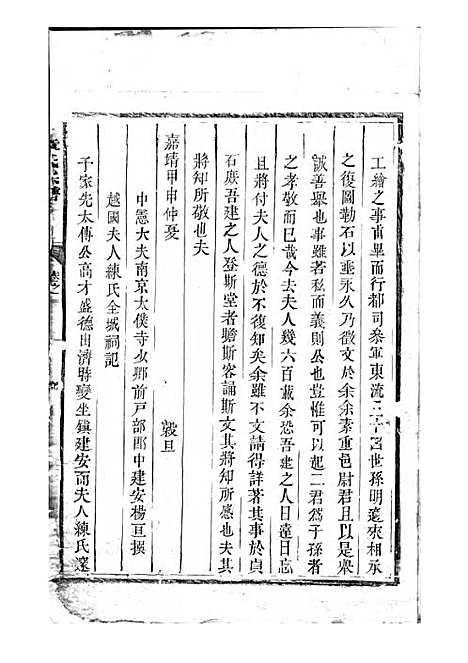 工繪之事甫畢而行都司叅軍東流二十宮世孫明遠來相承
之復圖勒石以垂永久乃徵文於余余素重邑尉君且以是舉
誠善舉也事雖若私而義則公也豈惟可以起二君為子孫者
之孝敬而已哉今去夫人幾六百載余恐吾建之人日遠日忘
且將付夫人之德於不復知矣余雖不文請得詳著其事於貞
石庶吾建之人登斯堂者瞻斯容誦斯文其將知所感也夫其
將知所敬也夫
嘉靖甲申仲夏 穀旦
中憲大夫南京太僕寺少卿前戸部郎中建安楊亘撰
越國夫人練氏全城祠記
予家先太傅公高才盛德出濟時變坐鎮建安而夫人練氏寔